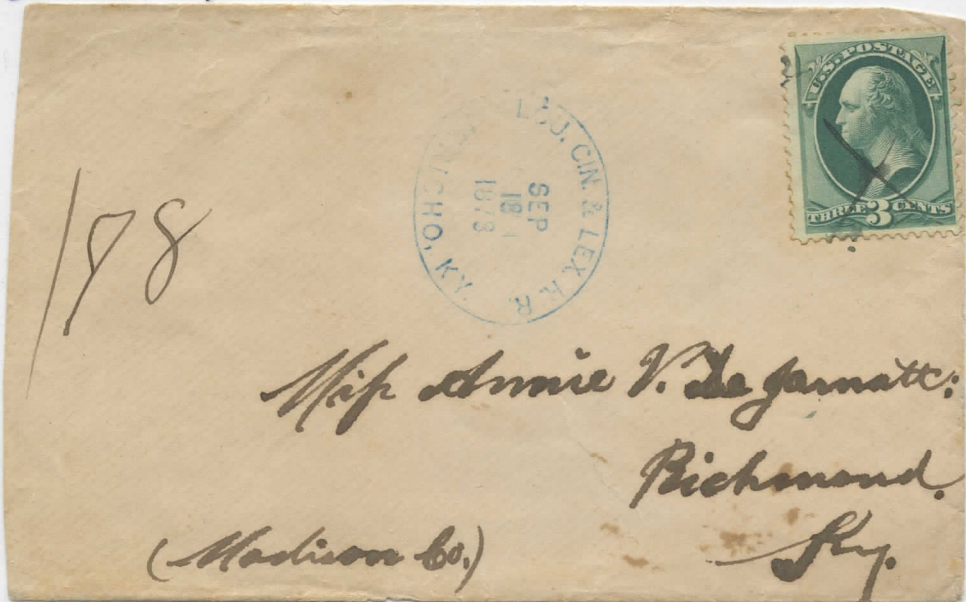 U.S. POSTAGE
THREE 3 CENTS
LOU. CIN. & LEX. R. R.
SEP
18
1873
JERICHO, KY.
178
Miss Annie V. De Jarnatt.
Richmond.
(Madison Co.)
Ky.